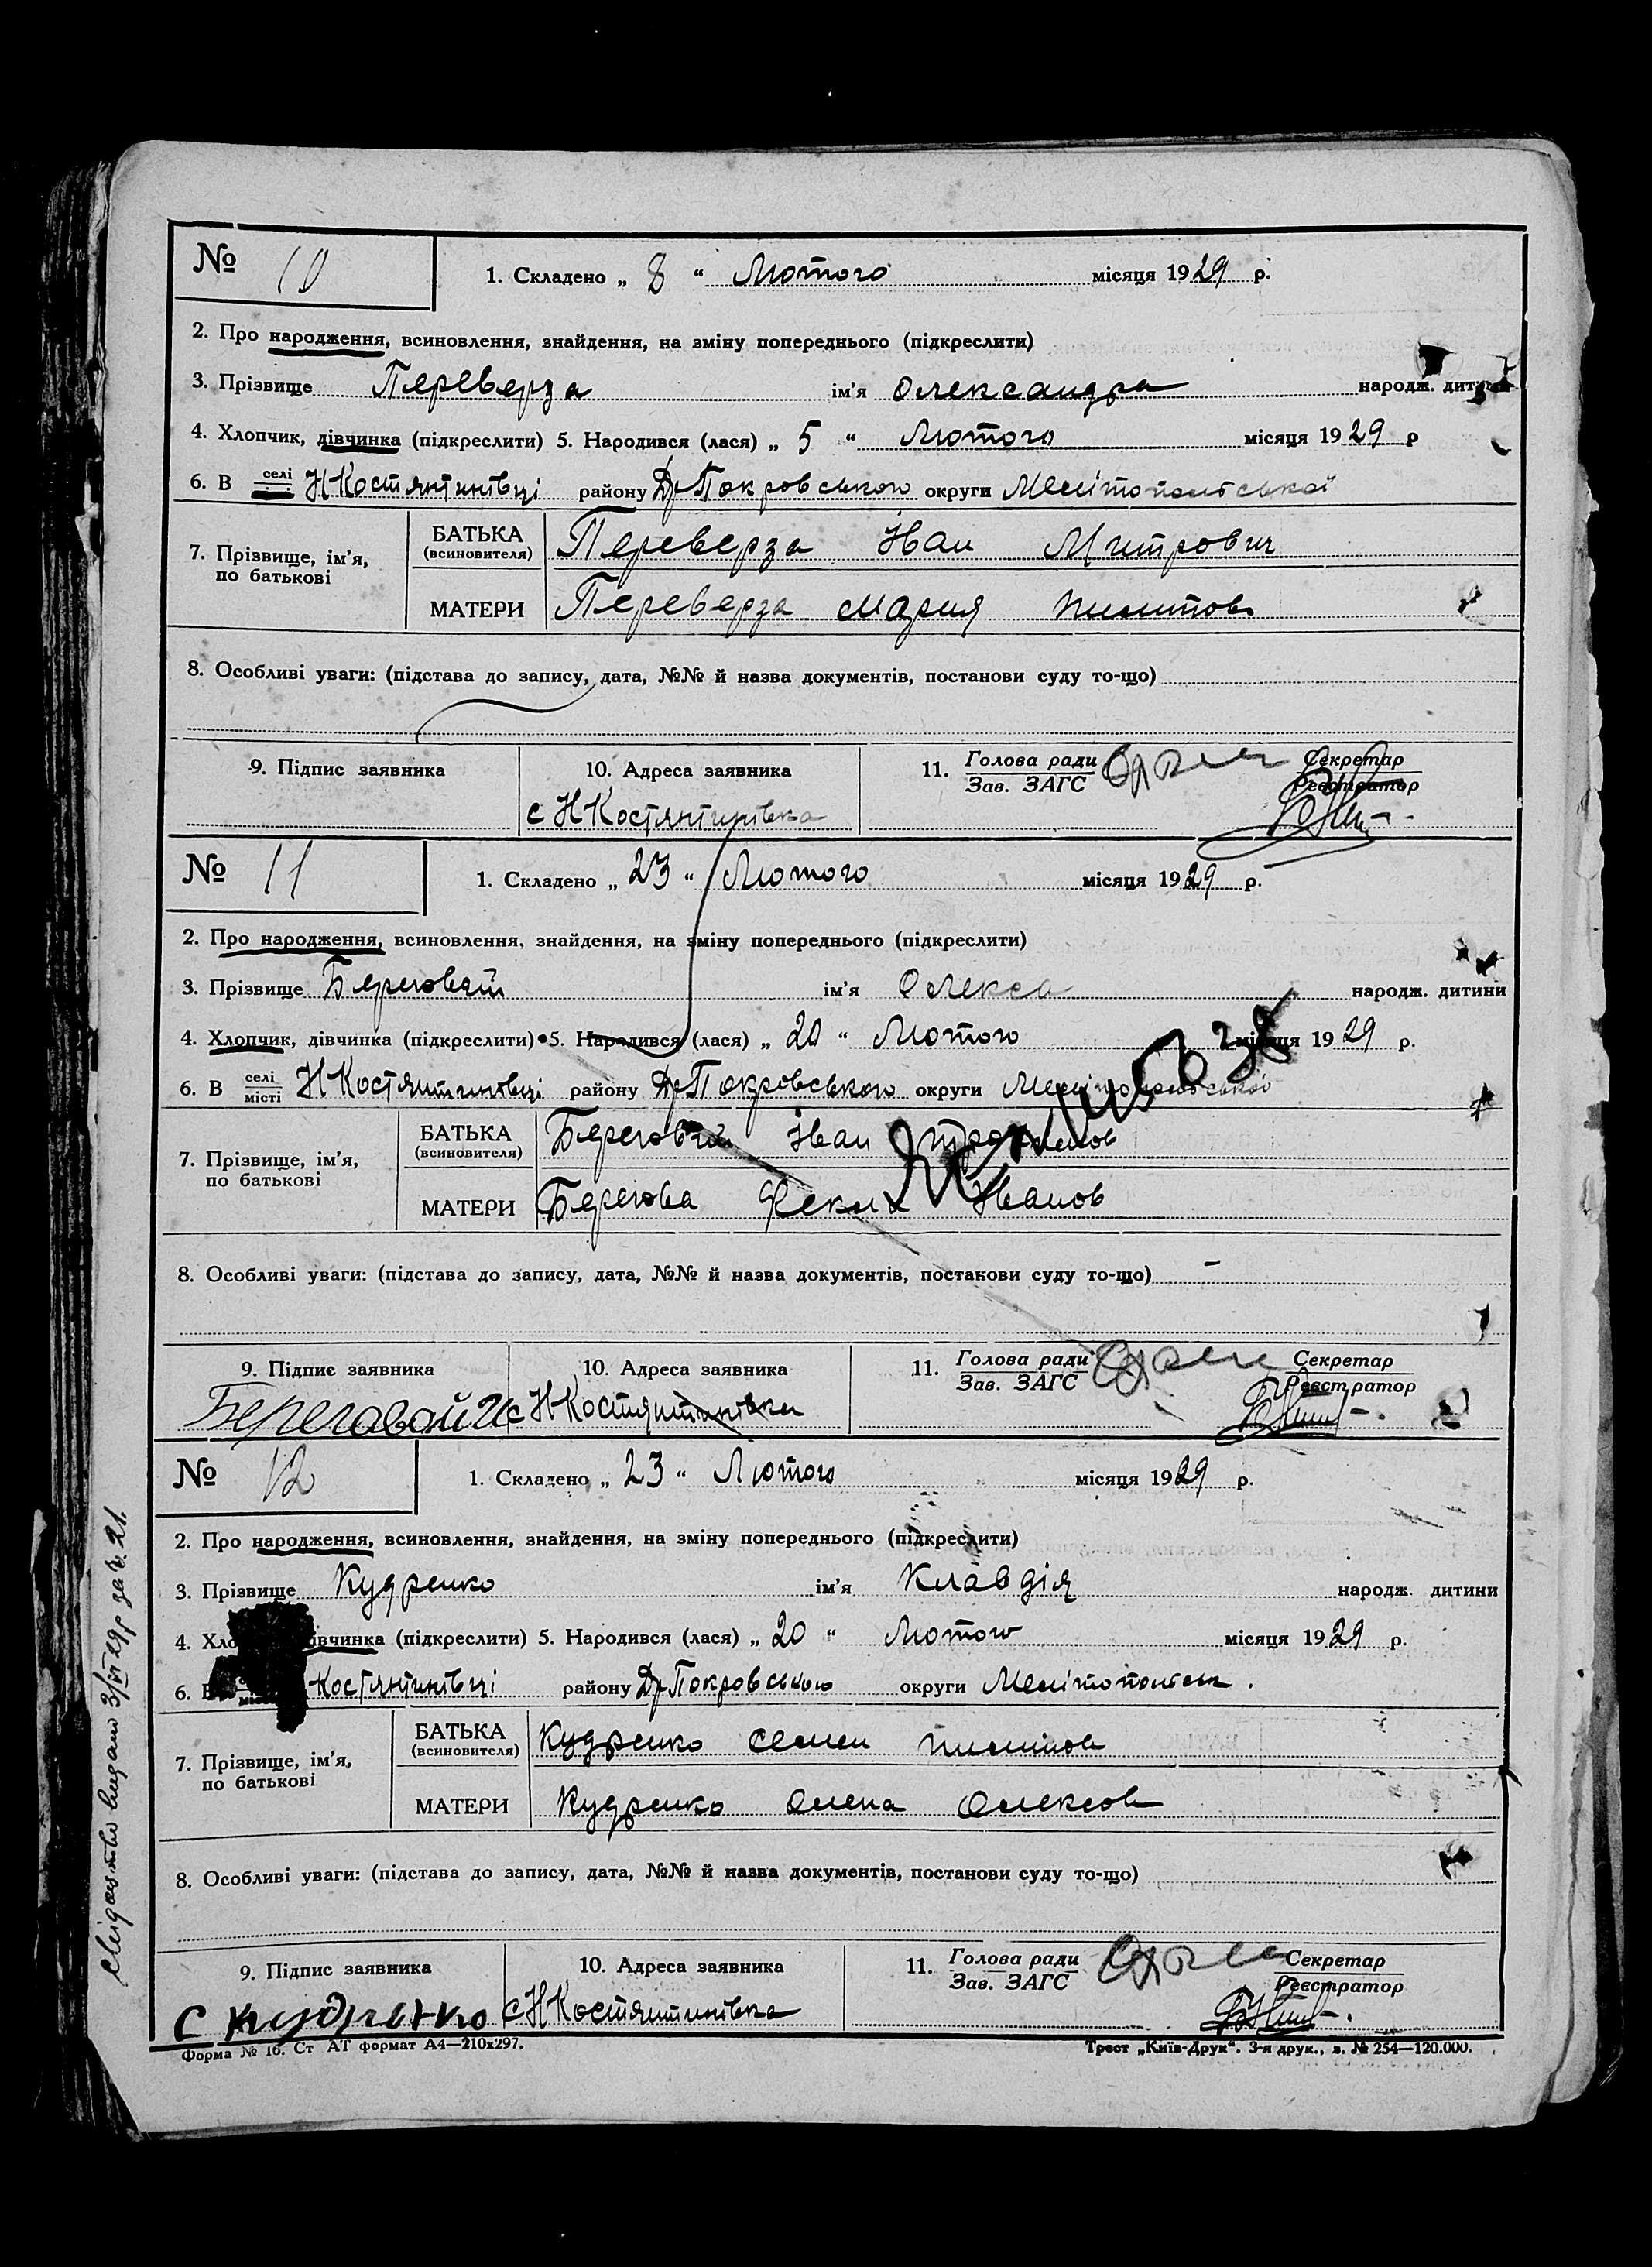 № 10 1. Складено „ 8 “ Лютого місяця 1929 р.
2. Про народження, всиновлення, знайдення, на зміну попереднього (підкреслити)
3. Прізвище Переверза ім’я Олександра народж. дитини
4. Хлопчик, дівчинка (підкреслити) 5. Народився (лася) „ 5 “ Лютого місяця 1929 р
6. В селі Н Костянтинівці району Др Покровського округи Мелітопольської
7. Прізвище, ім’я, по батькові
БАТЬКА (всиновителя) Переверза Іван Митрович
МАТЕРИ Переверза Мария Пилипов
8. Особливі уваги: (підстава до запису, дата, №№ й назва документів, постанови суду то-що)
9. Підпис заявника 10. Адреса заявника 11. Голова ради Секретар
Зав. ЗАГС Реєстратор
с Н Костянтинівка
№ 11 1. Складено „ 23 “ Лютого місяця 1929 р.
2. Про народження, всиновлення, знайдення, на зміну попереднього (підкреслити)
3. Прізвище Береговий ім’я Олекса народж. дитини
4. Хлопчик, дівчинка (підкреслити) 5. Народився (лася) „ 20 “ Лютого місяця 1929 р.
6. В селі місті Н Костянтинівці району Др Покровського округи Мелітопольської
7. Прізвище, ім’я, по батькові
БАТЬКА (всиновителя) Береговий Іван
МАТЕРИ Берегова Иванов
8. Особливі уваги: (підстава до запису, дата, №№ й назва документів, постанови суду то-що)
9. Підпис заявника 10. Адреса заявника 11. Голова ради Секретар
Зав. ЗАГС Реєстратор
Береговой И с Н Костянтинівка
№ 12 1. Складено „ 23 “ Лютого місяця 1929 р.
2. Про народження, всиновлення, знайдення, на зміну попереднього (підкреслити)
3. Прізвище Кудренко ім’я Клавдія народж. дитини
4. дівчинка (підкреслити) 5. Народився (лася) „ 20 “ Лютого місяця 1929 р.
6. В Костянтинівці району Др Покровського округи Мелітопольськ.
7. Прізвище, ім’я, по батькові
БАТЬКА (всиновителя) Кудренко Семен Пилипов
МАТЕРИ Кудренко Олена Олексов
8. Особливі уваги: (підстава до запису, дата, №№ й назва документів, постанови суду то-що)
9. Підпис заявника 10. Адреса заявника 11. Голова ради Секретар
Зав. ЗАГС Реєстратор
С Кудренко с Н Костянтинівка
Форма № 16. Ст АТ формат А4—210х297. Трест „Київ-Друк“. 3-я друк., з. № 254—120.000.
Свідоцтво видано 3/VI 29 р за № 21.